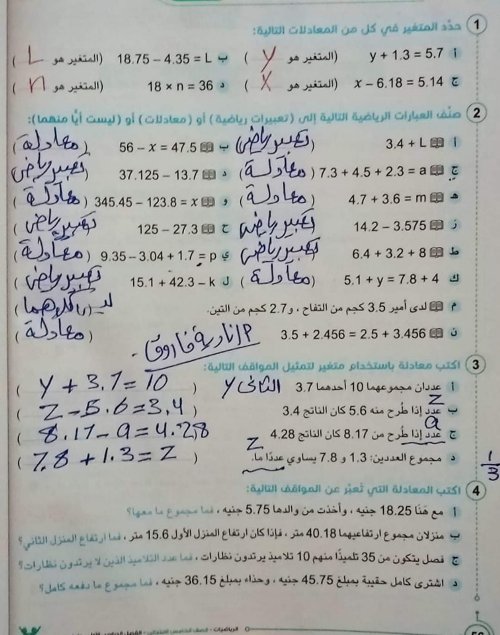 1 حدّد المتغير في كل من المعادلات التالية:
أ y + 1.3 = 5.7 (المتغير هو y) ب 18.75 – 4.35 = L (المتغير هو L)
ج x – 6.18 = 5.14 (المتغير هو x) د 18 × n = 36 (المتغير هو n)
2 صنّف العبارات الرياضية التالية إلى (تعبيرات رياضية) أو (معادلات) أو (ليست أيًّا منهما):
أ 3.4 + L (تعبير رياضي) ب 56 – x = 47.5 (معادلة)
ج 7.3 + 4.5 + 2.3 = a (معادلة) د 37.125 – 13.7 (تعبير رياضي)
هـ 4.7 + 3.6 = m (معادلة) و 345.45 – 123.8 = x (معادلة)
ز 14.2 – 3.575 (تعبير رياضي) ح 125 – 27.3 (تعبير رياضي)
ط 6.4 + 3.2 + 8 (تعبير رياضي) ي 9.35 – 3.04 + 1.7 = p (معادلة)
ك 5.1 + y = 7.8 + 4 (معادلة) ل 15.1 + 42.3 – k (تعبير رياضي)
م لدى أمير 3.5 كجم من التفاح ، و2.7 كجم من التين.
ن 3.5 + 2.456 = 2.5 + 3.456 (معادلة)
م/نادية فاروق
3 اكتب معادلة باستخدام متغير لتمثيل المواقف التالية:
أ عددان مجموعهما 10 أحدهما 3.7 الثاني y (y + 3.7 = 10)
ب عدد إذا طُرح منه 5.6 كان الناتج 3.4 z (z – 5.6 = 3.4)
ج عدد إذا طُرح من 8.17 كان الناتج 4.28 a (8.17 – a = 4.28)
د مجموع العددين: 1.3 و 7.8 يساوي عددًا ما. z (7.8 + 1.3 = z)
1/3
4 اكتب المعادلة التي تُعبّر عن المواقف التالية:
أ مع هَنا 18.25 جنيه ، وأخذت من والدها 5.75 جنيه ، فما مجموع ما معها؟
ب منزلان مجموع ارتفاعيهما 40.18 متر ، فإذا كان ارتفاع المنزل الأول 15.6 متر ، فما ارتفاع المنزل الثاني؟
ج فصل يتكون من 35 تلميذًا منهم 10 تلاميذ يرتدون نظارات ، فما عدد التلاميذ الذين لا يرتدون نظارات؟
د اشترى كامل حقيبة بمبلغ 45.75 جنيه ، وحذاء بمبلغ 36.15 جنيه ، فما مجموع ما دفعه كامل؟